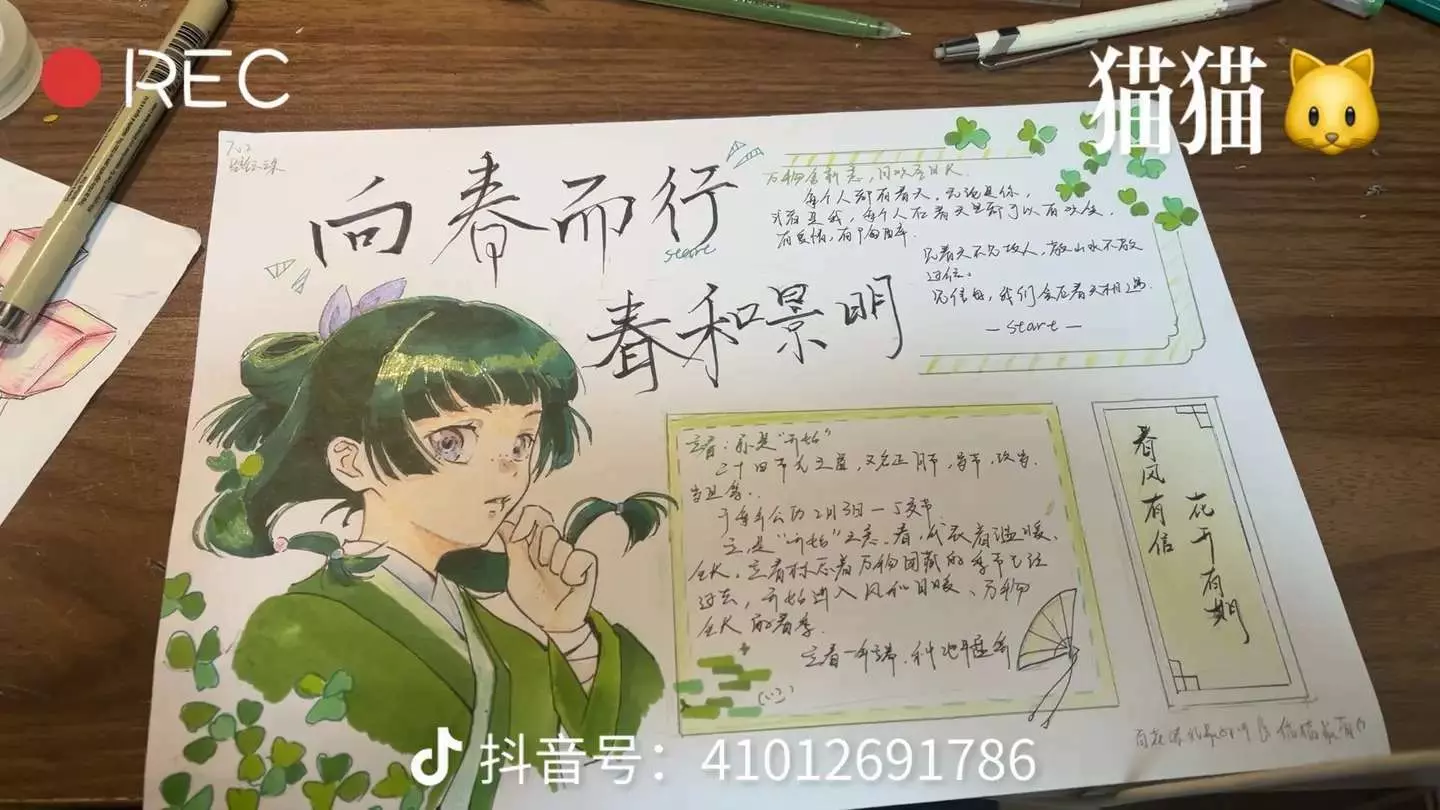 REC
猫猫🐱
702
向春而行
start
春和景明
万物含新意,同欢圣日长.
每个人都有春天.无论是你,
或者是我,每个人在春天里都可以有欢笑,
有爱情,有陶醉.
见春天不见故人,敬山水不敬
过往。
见信安,我们会在春天相遇.
—start—
立春:象是"开始"
二十四节气之首,又名正月节,岁节,改岁,
岁旦等..
于每年公历2月3日—5交节.
立,是"开始"之意.春,代表着温暖、
生长.立春标志着万物闭藏的季节已经
过去,开始进入风和日暖、万物
生长的春季.
立春一年端,种地早盘算
春风有信
花开有期
抖音号:41012691786